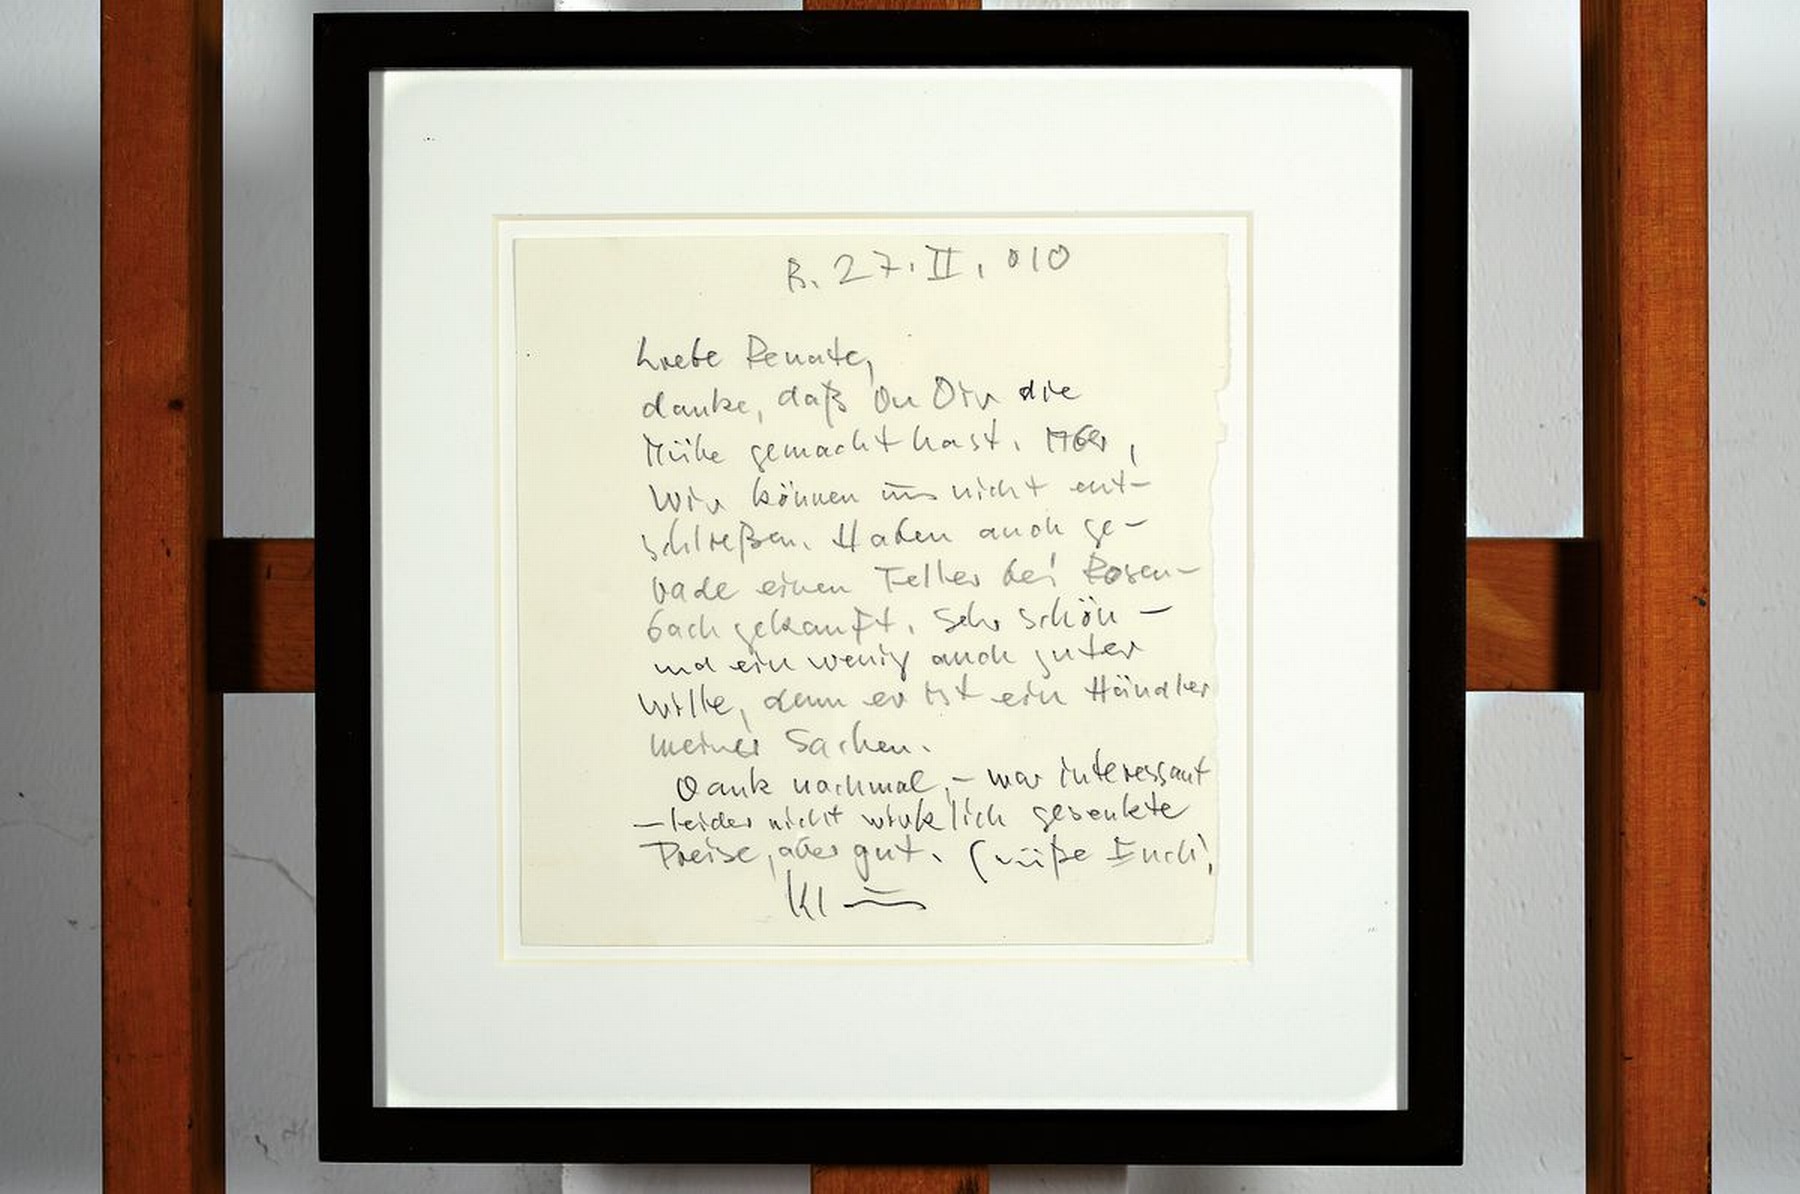 B. 27. II. 010
Liebe Renate,
danke, daß Du Dir die
Mühe gemacht hast. Aber,
Wir können uns nicht ent-
schließen. Haben auch ge-
rade einen Teller bei Rosen-
bach gekauft. Sehr schön –
und ein wenig auch guter
Wille, denn er ist ein Händler
meiner Sachen.
Dank nochmal, – war interessant
– leider nicht wirklich gesenkte
Preise, aber gut. Grüße Euch!,
Kl